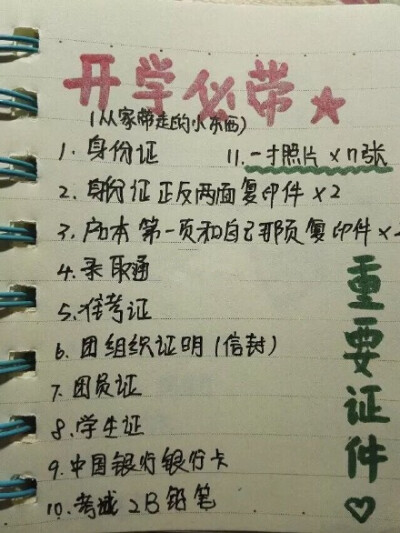 开学必带☆
(从家带走的小东西)
1. 身份证
11. 一寸照片 ×n张
2. 身份证正反两面复印件 ×2
3. 户口本 第一页和自己那页复印件 ×2
4. 录取通
5. 准考证
6. 团组织证明(信封)
7. 团员证
8. 学生证
9. 中国银行银行卡
10. 考试 2B 铅笔
重要证件♡